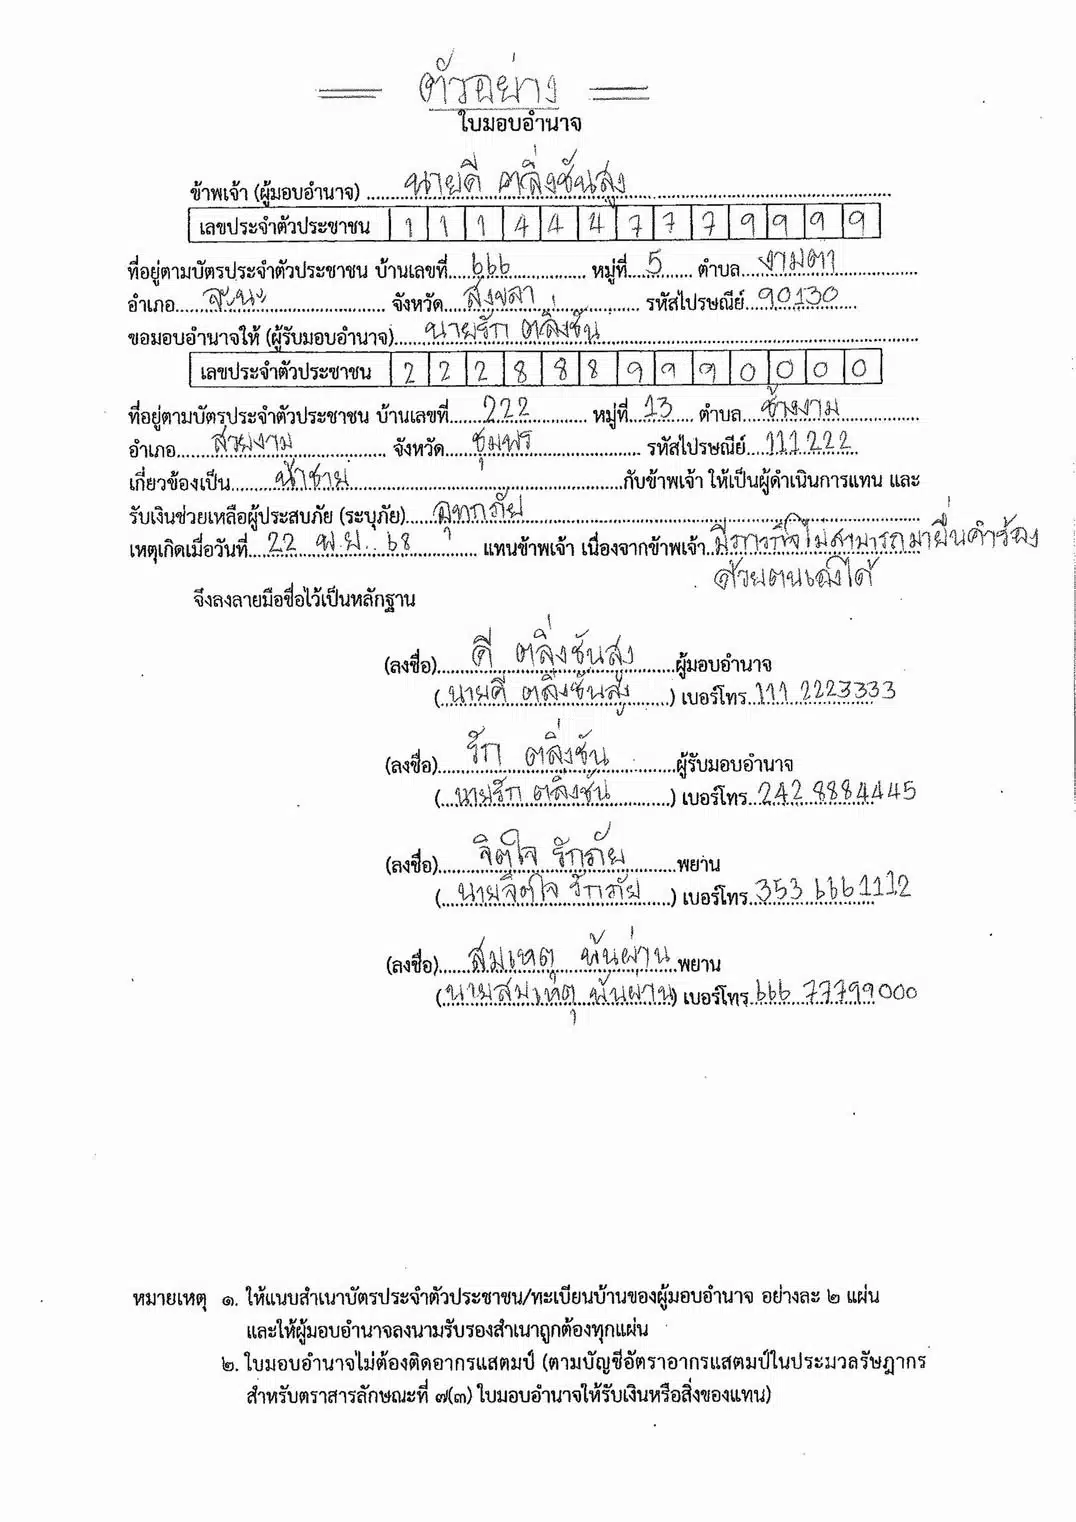 ตัวอย่าง
ใบมอบอำนาจ
ข้าพเจ้า (ผู้มอบอำนาจ) นายดี ตลิ่งชันสูง
เลขประจำตัวประชาชน 1 1 1 4 4 4 7 7 7 9 9 9 9
ที่อยู่ตามบัตรประจำตัวประชาชน บ้านเลขที่ 666 หมู่ที่ 5 ตำบล งามตา
อำเภอ จะนะ จังหวัด สงขลา รหัสไปรษณีย์ 90130
ขอมอบอำนาจให้ (ผู้รับมอบอำนาจ) นายรัก ตลิ่งชัน
เลขประจำตัวประชาชน 2 2 2 8 8 8 9 9 9 0 0 0 0
ที่อยู่ตามบัตรประจำตัวประชาชน บ้านเลขที่ 222 หมู่ที่ 13 ตำบล ช้างงาม
อำเภอ สวยงาม จังหวัด ชุมพร รหัสไปรษณีย์ 111222
เกี่ยวข้องเป็น น้าชาย กับข้าพเจ้า ให้เป็นผู้ดำเนินการแทน และ
รับเงินช่วยเหลือผู้ประสบภัย (ระบุภัย) อุทกภัย
เหตุเกิดเมื่อวันที่ 22 พ.ย. 68 แทนข้าพเจ้า เนื่องจากข้าพเจ้า มีภารกิจไม่สามารถมายื่นคำร้อง
ด้วยตนเองได้
จึงลงลายมือชื่อไว้เป็นหลักฐาน
(ลงชื่อ) ดี ตลิ่งชันสูง ผู้มอบอำนาจ
(นายดี ตลิ่งชันสูง) เบอร์โทร 111 2223333
(ลงชื่อ) รัก ตลิ่งชัน ผู้รับมอบอำนาจ
(นายรัก ตลิ่งชัน) เบอร์โทร 242 8884445
(ลงชื่อ) จิตใจ รักภัย พยาน
(นายจิตใจ รักภัย) เบอร์โทร 353 6661112
(ลงชื่อ) สมเหตุ พ้นผ่าน พยาน
(นายสมเหตุ พ้นผ่าน) เบอร์โทร 666 77799000
หมายเหตุ ๑. ให้แนบสำเนาบัตรประจำตัวประชาชน/ทะเบียนบ้านของผู้มอบอำนาจ อย่างละ ๒ แผ่น
และให้ผู้มอบอำนาจลงนามรับรองสำเนาถูกต้องทุกแผ่น
๒. ใบมอบอำนาจไม่ต้องติดอากรแสตมป์ (ตามบัญชีอัตราอากรแสตมป์ในประมวลรัษฎากร
สำหรับตราสารลักษณะที่ ๗(๓) ใบมอบอำนาจให้รับเงินหรือสิ่งของแทน)